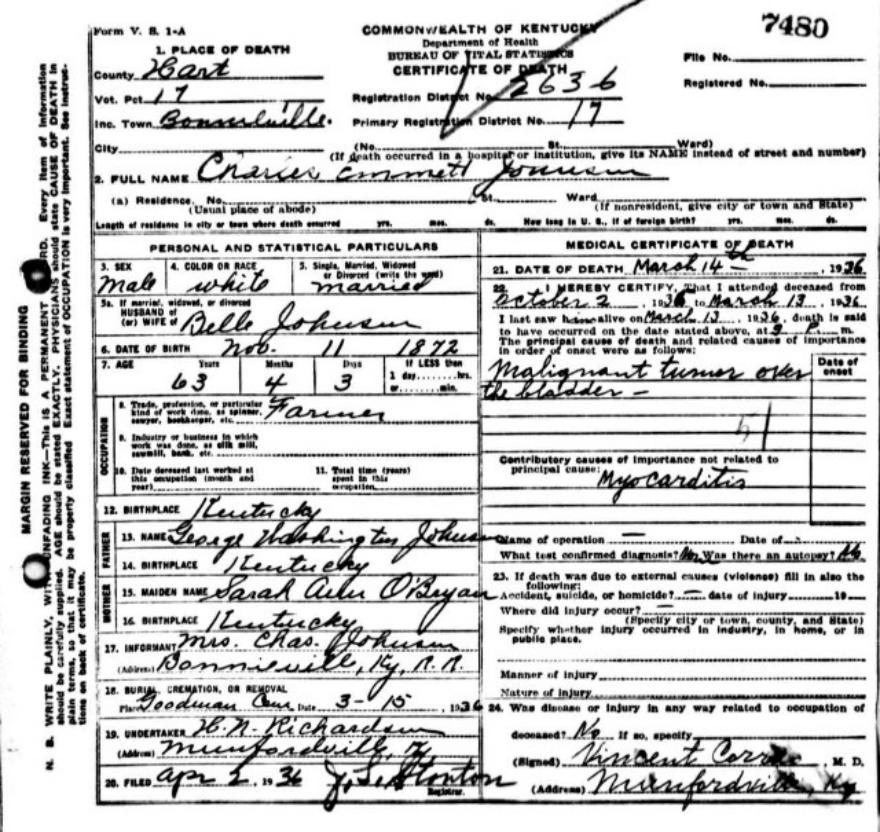 Form V. S. 1-A
COMMONWEALTH OF KENTUCKY
7480
Department of Health
BUREAU OF VITAL STATISTICS
CERTIFICATE OF DEATH
File No.
Registered No.
1. PLACE OF DEATH
County Hart
Vot. Pct 17
Inc. Town Bonnieville.
City
Registration District No. 2636
Primary Registration District No. 17
(No. St. Ward)
(If death occurred in a hospital or institution, give its NAME instead of street and number)
2. FULL NAME Charles Emmett Johnson
(a) Residence. No. St. Ward
(Usual place of abode) (If nonresident, give city or town and State)
Length of residence in city or town where death occurred yrs. mos. ds. How long in U. S., if of foreign birth? yrs. mos. ds.
PERSONAL AND STATISTICAL PARTICULARS
3. SEX 4. COLOR OR RACE 5. Single, Married, Widowed
or Divorced (write the word)
Male white married
5a. If married, widowed, or divorced
HUSBAND of
(or) WIFE of Belle Johnson
6. DATE OF BIRTH Nov. 11 1872
7. AGE Years Months Days If LESS than
1 day, hrs.
or min.
63 4 3
OCCUPATION
8. Trade, profession, or particular
kind of work done, as spinner,
sawyer, bookkeeper, etc. Farmer
9. Industry or business in which
work was done, as silk mill,
sawmill, bank, etc.
10. Date deceased last worked at
this occupation (month and
year)
11. Total time (years)
spent in this
occupation
12. BIRTHPLACE Kentucky
FATHER
13. NAME George Washington Johnson
14. BIRTHPLACE Kentucky
MOTHER
15. MAIDEN NAME Sarah Ann O'Bryan
16. BIRTHPLACE Kentucky
17. INFORMANT Mrs. Chas. Johnson
(Address) Bonnieville, Ky, R. R.
18. BURIAL, CREMATION, OR REMOVAL
Place Goodman Cem Date 3-15, 1936
19. UNDERTAKER H. N. Richardson
(Address) Munfordville, Ky
20. FILED Apr 2, 1936 J. S. Stonton
Registrar.
MEDICAL CERTIFICATE OF DEATH
21. DATE OF DEATH March 14th, 1936
22. I HEREBY CERTIFY, That I attended deceased from
October 2, 1936 to March 13, 1936
I last saw him alive on March 13, 1936, death is said
to have occurred on the date stated above, at 9 P. m.
The principal cause of death and related causes of importance
in order of onset were as follows:
Date of
onset
Malignant tumer over
the bladder -
51
Contributory causes of importance not related to
principal cause:
Myocarditis
Name of operation — Date of
What test confirmed diagnosis? Was there an autopsy? No
23. If death was due to external causes (violence) fill in also the
following:
Accident, suicide, or homicide? — date of injury 19
Where did injury occur? —
(Specify city or town, county, and State)
Specify whether injury occurred in industry, in home, or in
public place.
Manner of injury
Nature of injury
24. Was disease or injury in any way related to occupation of
deceased? No If so, specify
(Signed) Vincent, M. D.
(Address) Munfordville, Ky
MARGIN RESERVED FOR BINDING
N. B. WRITE PLAINLY, WITH UNFADING INK—This is A PERMANENT RECORD. Every item of information
should be carefully supplied. AGE should be stated EXACTLY. PHYSICIANS should state CAUSE OF DEATH in
plain terms, so that it may be properly classified. Exact statement of OCCUPATION is very important. See instruc-
tions on back of certificate.